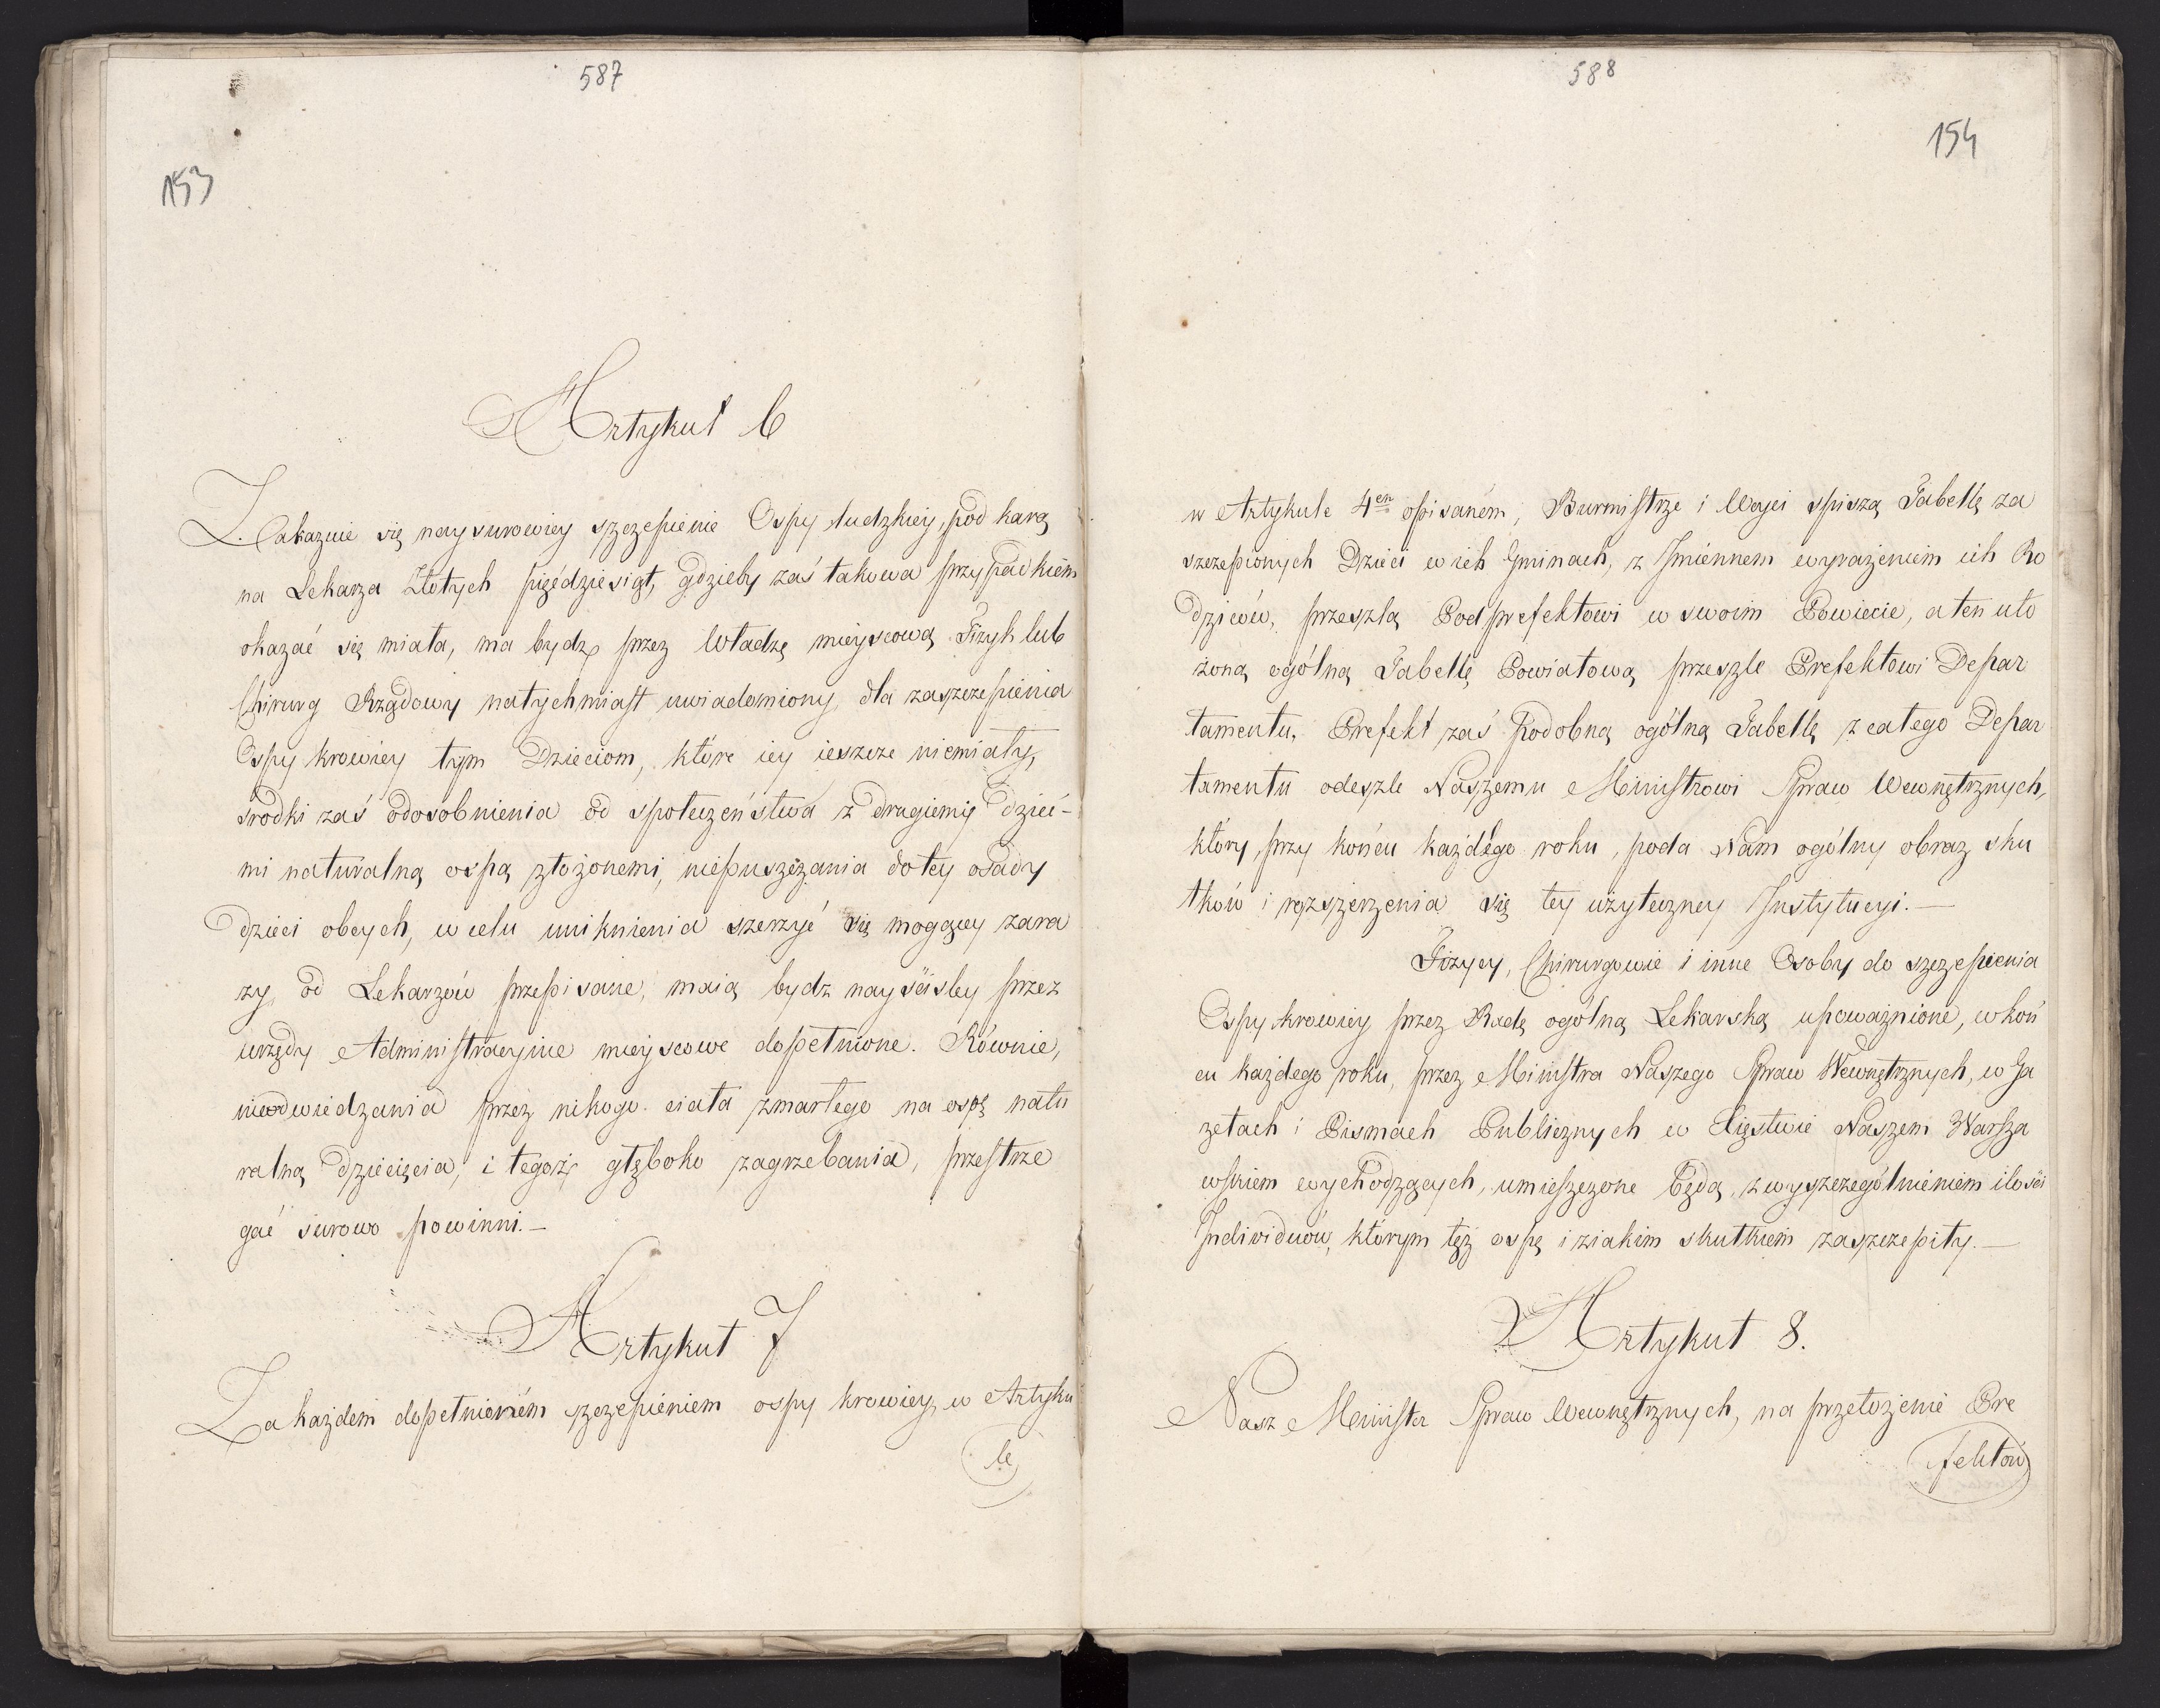 587
153
Artykuł 6
Zakazuie się naysurowiey szczepienie Ospy ludzkiey, pod karą
na Lekarza Złotych pięćdziesiąt, gdzieby zaś takowa przypadkiem
okazać się miała, ma bydź przez Władzę mieyscową Fizyk lub
Chirurg Rządowy natychmiast uwiadomiony, dla zaszczepienia
Ospy krowiey tym Dzieciom, które iey ieszcze niemiały,
srodki zaś odosobnienia od społeczeństwa z drugiemi dzieć-
mi naturalną ospą złożonemi, niepuszczania do tey osady
dzieci obcych, w celu uniknienia szerzyć się mogącey zara
zy, od Lekarzów przepisane, maią bydz nayściśley przez
urzędy Administracyine mieyscowe dopełnione. Równie,
nieodwiedzania przez nikogo ciała zmarłego na ospę natu
ralną dziecięcia, i tegoż głęboko zagrzebania, przestrze
gać surowo powinni.—
Artykuł 7
Za każdem dopełnieniem szczepieniem ospy krowiey, w Artyku
le
588
154
w Artykule 4en opisaném, Burmistrze i Woyci spiszą Tabellę za
szczepionych Dzieci w ich Gminach, z Imiennem wyrażeniem ich Ro
dziców, przeszlą Podprefektowi w swoim Powiecie, a ten uło
żoną ogólną Tabellę Powiatową przeszle Prefektowi Depar
tamentu, Prefekt zaś Podobną ogólną Tabellę z całego Depar
tamentu odeszle Naszemu Ministrowi Spraw Wewnętrznych,
który, przy końcu każdego roku, poda Nam ogólny obraz sku
tków i rozszerzenia się tey użyteczney Instytucyi.—
Fizycy, Chirurgowie i inne Osoby do szczepienia
Ospy krowiey przez Radę ogólną Lekarską upoważnione, w koń
cu każdego roku, przez Ministra Naszego Spraw Wewnętrznych, w Ga
zetach i Pismach Publicznych w Xięstwie Naszem Warsza
wskiem wychodzących, umieszczone będą, z wyszczególnieniem ilości
Individuów, którym tęż ospę i z iakim skutkiem zaszczepiły.—
Artykuł 8.
Nasz Minister Spraw Wewnętrznych, na przełożenie Pre
fektów